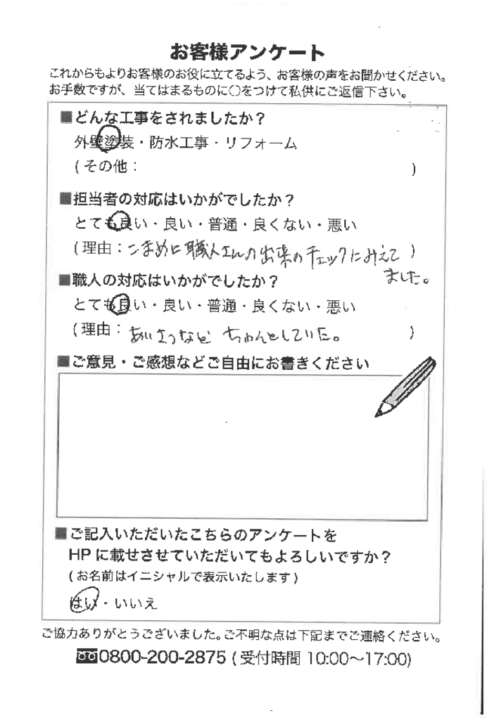 お客様アンケート
これからもよりお客様のお役に立てるよう、お客様の声をお聞かせください。
お手数ですが、当てはまるものに○をつけて私供にご返信下さい。
■どんな工事をされましたか？
外壁塗装・防水工事・リフォーム
(その他：　)
■担当者の対応はいかがでしたか？
とても良い・良い・普通・良くない・悪い
(理由：こまめに職人さんの出来のチェックにみえて)
ました。
■職人の対応はいかがでしたか？
とても良い・良い・普通・良くない・悪い
(理由：あいさつなど ちゃんとしていた。)
■ご意見・ご感想などご自由にお書きください
■ご記入いただいたこちらのアンケートを
HPに載せさせていただいてもよろしいですか？
(お名前はイニシャルで表示いたします)
はい・いいえ
ご協力ありがとうございました。ご不明な点は下記までご連絡ください。
0800-200-2875 (受付時間 10:00～17:00)